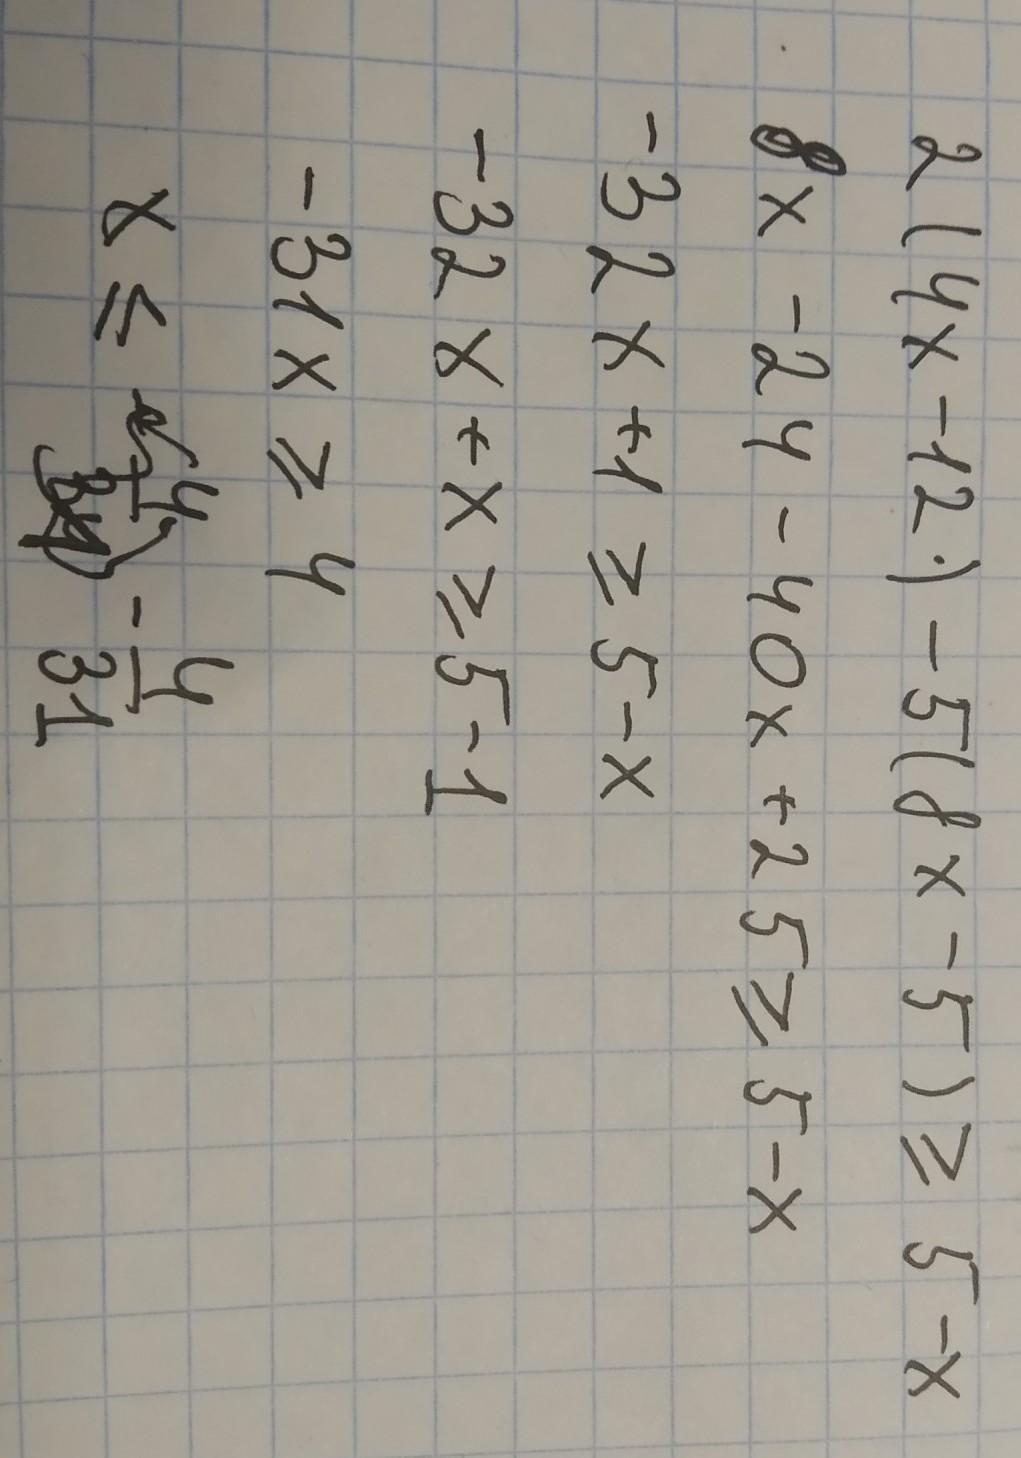 2(4x-12)-5(8x-5)≥5-x
8x-24-40x+25≥5-x
-32x+1≥5-x
-32x+x≥5-1
-31x≥4
x≤-4/31